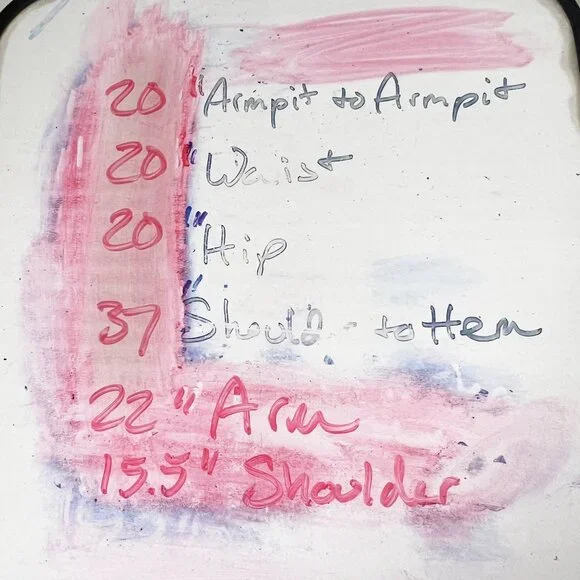 20 "Armpit to Armpit
20 "Waist
20 "Hip
37 "Should - to Hem
22 "Arm
15.5" Shoulder